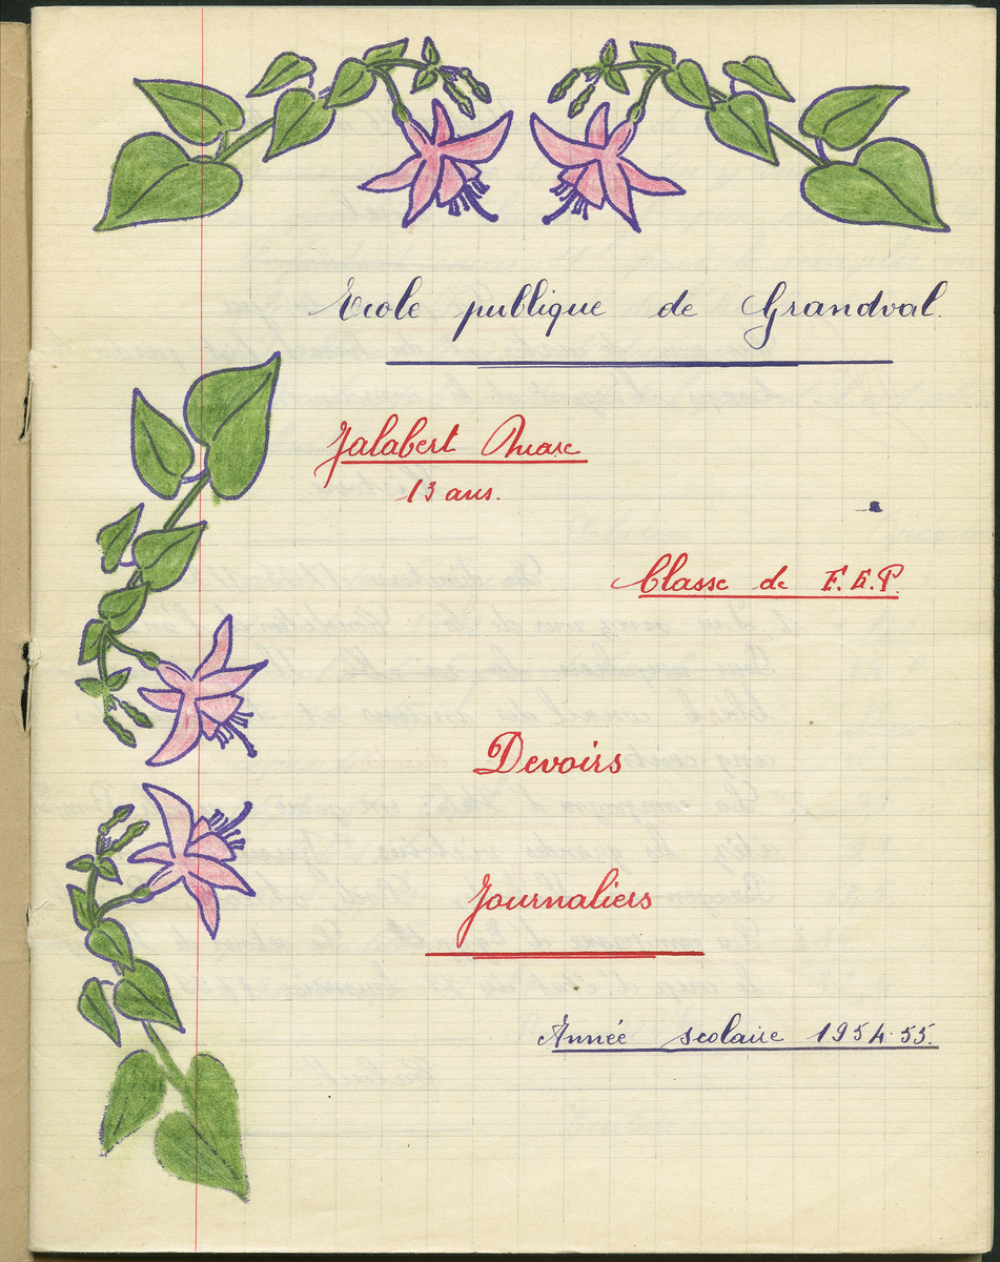 Ecole publique de Grandval.
Jalabert Marc
13 ans.
Classe de F.E.P.
Devoirs
Journaliers
Année scolaire 1954-55.